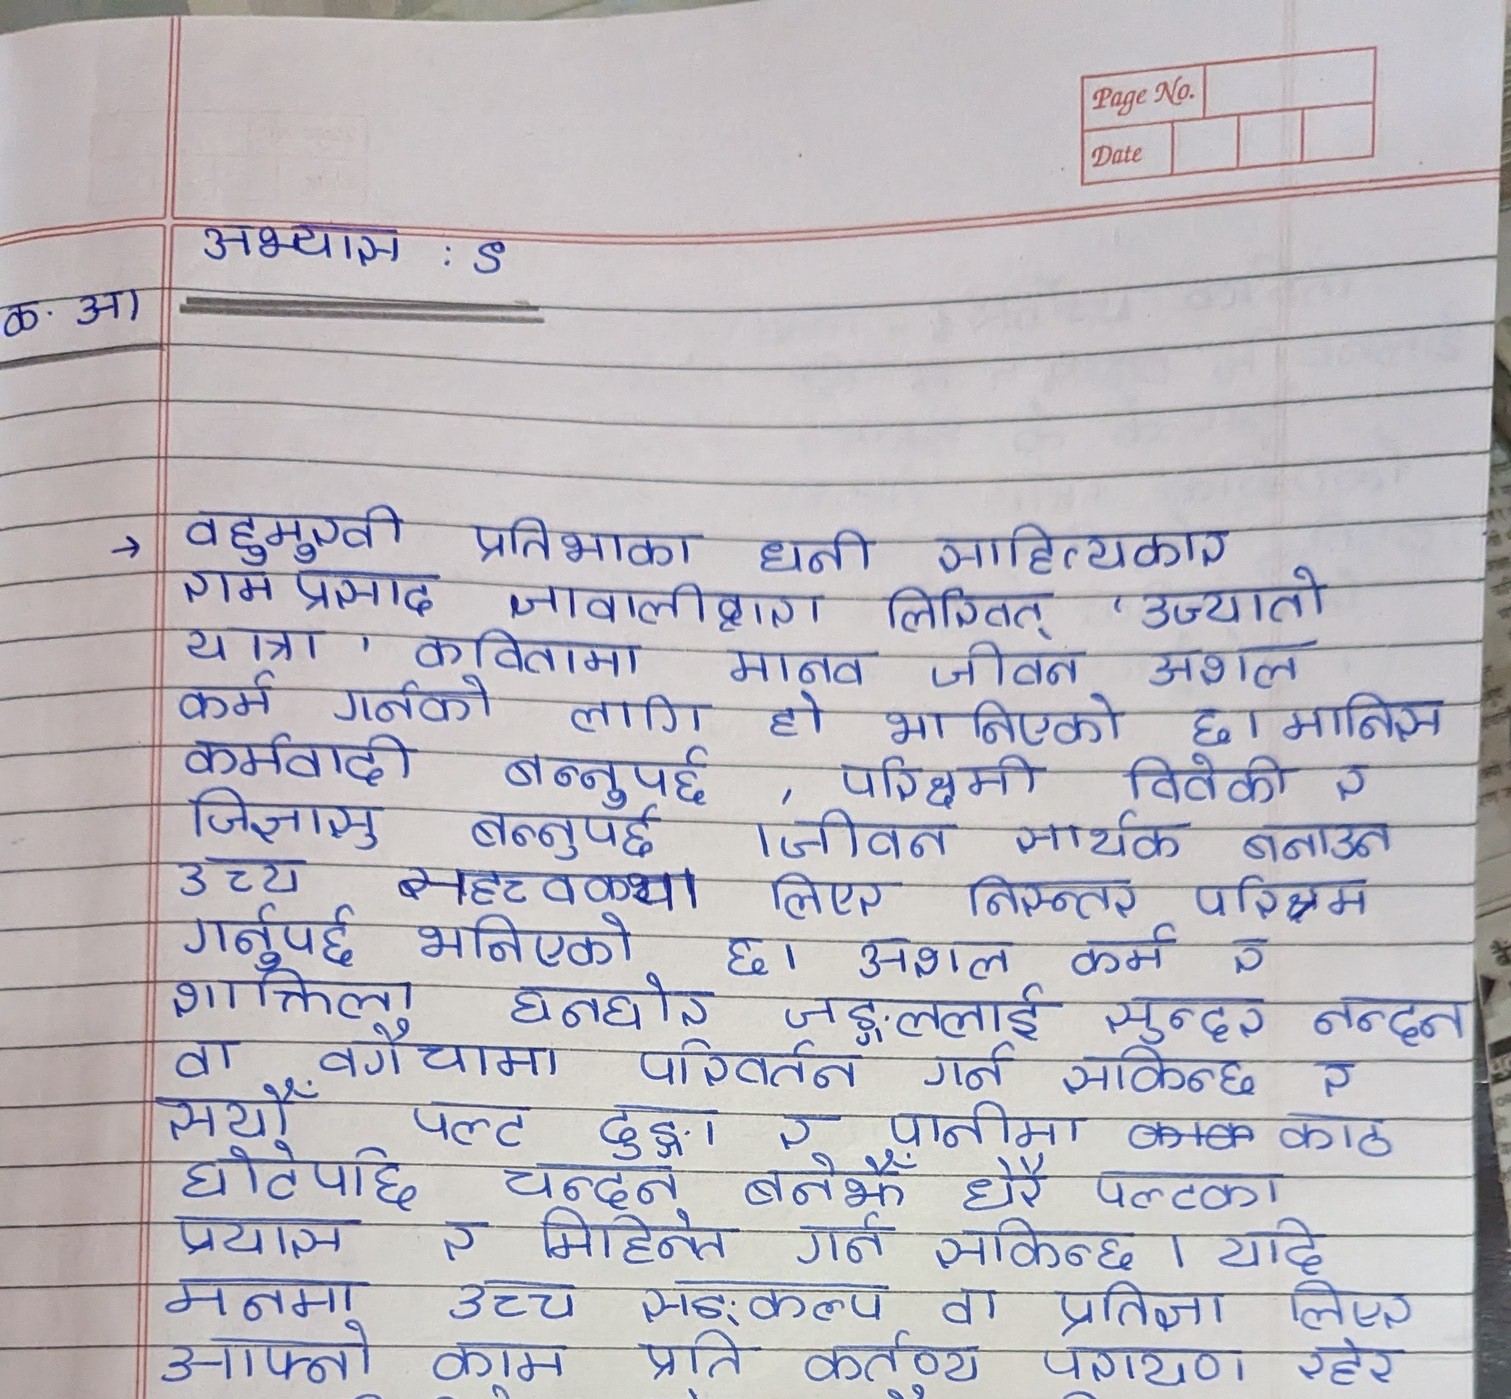 Page No.
Date
अभ्यास : ९
क. आ
→ वहुमुखी प्रतिभाका धनी साहित्यकार
राम प्रसाद ज्ञावालीद्वारा लिखित् 'उज्यातो
यात्रा' कवितामा मानव जीवन अशल
कर्म गर्नको लागि हो भानिएको छ। मानिस
कर्मवादी बन्नुपर्छ , परिश्रमी विवेकी र
जिज्ञासु बन्नुपर्छ ।जीवन सार्थक बनाउन
उच्य लिएर निरन्तर परिश्रम
गर्नुपर्छ भनिएको छ। अशल कर्म र
शाक्तिला घनघोर जङ्गललाई सुन्दर नन्दन
वा वगैचामा परिवर्तन गर्न सकिन्छ र
सयौँ पल्ट ढुङ्गा र पानीमा काठ
घोटेपछि चन्दन बनेझैँ धेरै पल्टका
प्रयास र मिहिनेत गर्न सकिन्छ । यदि
मनमा उच्च सङ्कल्प वा प्रतिज्ञा लिएर
आफ्नो काम प्रति कर्तव्य परायण रहेर